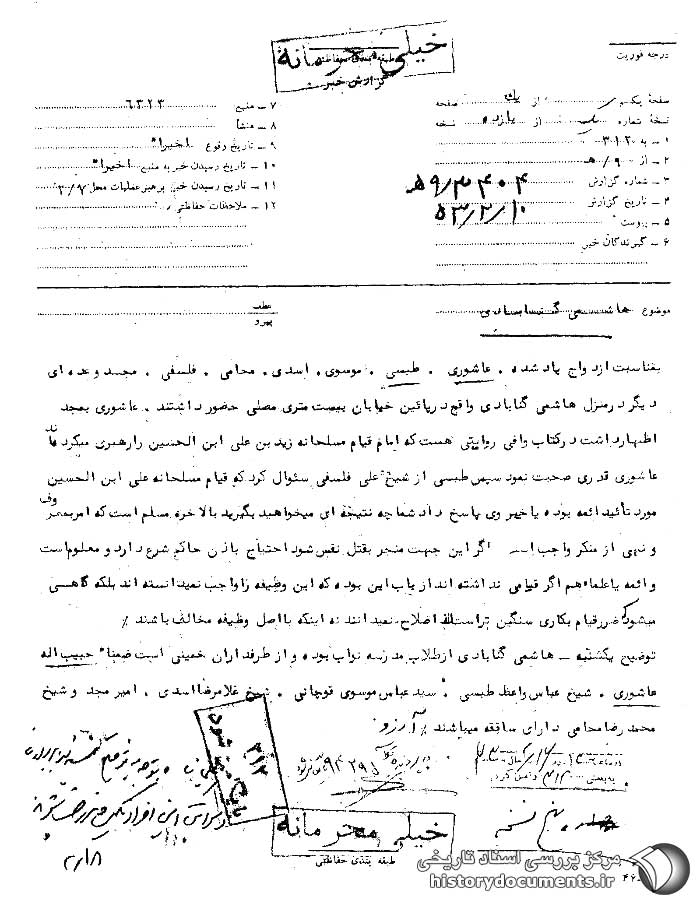 خیلی محرمانه
طبقه بندی حفاظتی
گزارش خبر
درجه فوریت
صفحه یکم از یک صفحه
نسخه شماره از یازده نسخه
۱ – به ۳۰۱۲۰
۲ – از ۹/۰هـ
۳ – شماره گزارش ۹/۳۴۰۴هـ
۴ – تاریخ گزارش ۵۳/۲/۱۰
۵ – پیوست
۶ – گیرندگان خبر
۷ – منبع ۶۳۲۳
۸ – منشأ
۹ – تاریخ وقوع اخیرا"
۱۰ – تاریخ رسیدن خبر به منبع اخیرا"
۱۱ – تاریخ رسیدن خبر برهبر عملیات محل ۲/۷
۱۲ – ملاحظات حفاظتی
موضوع هاشمی گنابادی
عطف
پیرو
بمناسبت ازدواج یاد شده ، عاشوری ، طبسی ، موسوی ، اسدی ، محامی ، فلسفی ، مجد و عده ای
دیگر در منزل هاشمی گنابادی واقع در پائین خیابان بیست متری مصلی حضور داشتند ، عاشوری بمجد
اظهار داشت در کتاب وافی روایتی هست که امام قیام مسلحانه زید بن علی ابن الحسین را رهبری میکرد
عاشوری قدری صحبت نمود سپس طبسی از شیخ علی فلسفی سئوال کرد که قیام مسلحانه علی ابن الحسین
مورد تائید ائمه بوده یا خیر وی پاسخ داد شما چه نتیجه ای میخواهید بگیرید بالاخره مسلم است که امر بمعروف
و نهی از منکر واجب است اگر این جهت منجر بقتل نفس شود احتیاج باذن حاکم شرع دارد و معلوم است
و ائمه یا علماء هم اگر قیامی نداشته اند از باب این بوده که این وظیفه را واجب نمیدانسته اند بلکه گاهی
میشود که ضرر قیام بکاری سنگین تر است لذا اصلاح نمیدانند نه اینکه با اصل وظیفه مخالف باشند ٪
توضیح یکشنبه – هاشمی گنابادی از طلاب مدرسه نواب بوده و از طرفداران خمینی است ضمنا" حبیب اله
عاشوری ، شیخ عباس واعظ طبسی ، سید عباس موسوی قوچانی ، شیخ غلامرضا اسدی ، امیر مجد و شیخ
محمد رضا محامی دارای سابقه میباشند ٪ آرزو
۳۱۲
تایپ شود
۲/۸
خیلی محرمانه
طبقه بندی حفاظتی
پنج نسخه
مرکز بررسی اسناد تاریخی
historydocuments.ir